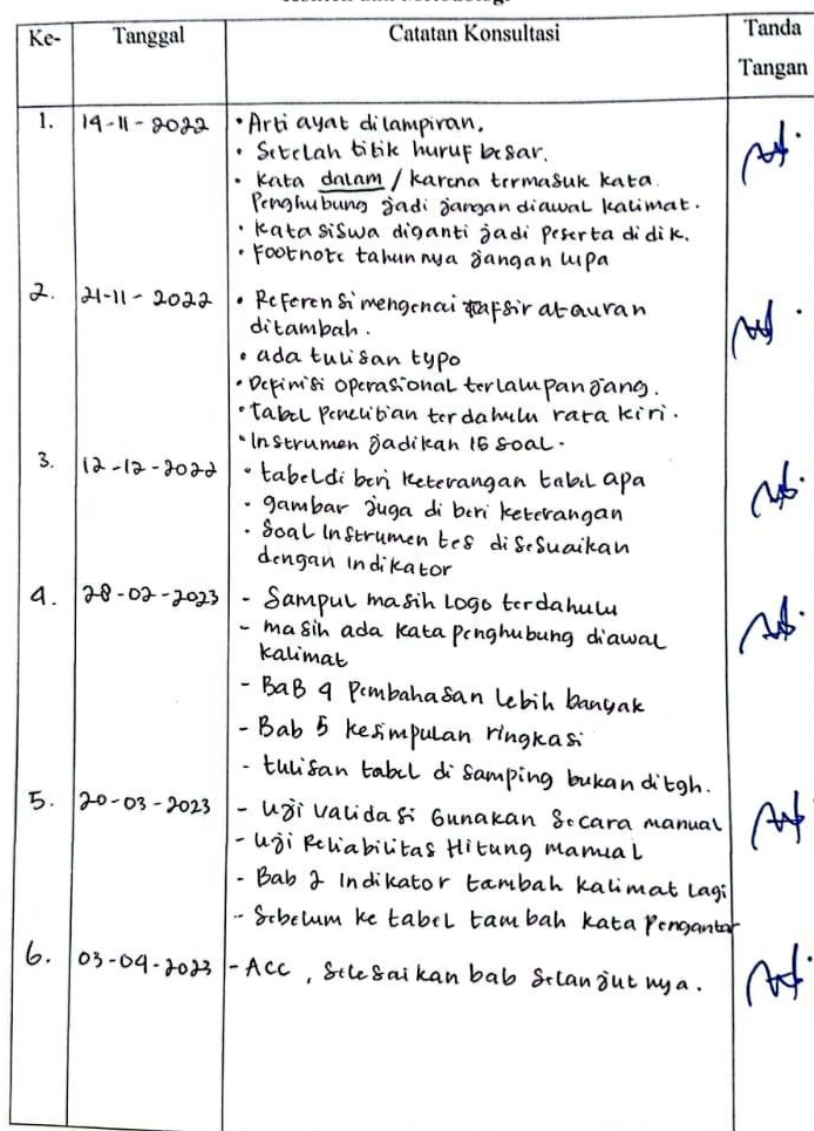 Ke-
Tanggal
Catatan Konsultasi
Tanda
Tangan
1. 14-11-2022
• Arti ayat dilampiran.
• Setelah titik huruf besar.
• Kata dalam / karena termasuk kata
Penghubung jadi jangan diawal kalimat.
• Kata siswa diganti jadi Peserta didik.
• Footnote tahun nya jangan lupa
2. 21-11-2022
• Referensi mengenai tafsir atauran
ditambah.
• ada tulisan typo
• Definisi operasional terlalu panjang.
• tabel Penelitian terdahulu rata kiri.
• Instrumen jadikan 15 soal.
3. 12-12-2022
• tabel di beri keterangan tabel apa
• gambar juga di beri keterangan
• Soal Instrumen tes di sesuaikan
dengan indikator
4. 28-02-2023
- Sampul masih Logo terdahulu
- masih ada kata penghubung diawal
kalimat
- BaB 4 Pembahasan Lebih banyak
- Bab 5 kesimpulan ringkasi
- tulisan tabel di samping bukan ditgh.
5. 20-03-2023
- Uji Validasi Gunakan Secara manual
- Uji Reliabilitas Hitung manual
- Bab 2 Indikator tambah kalimat Lagi
- Sebelum ke tabel tambah kata Pengantar
6. 03-04-2023
- Acc, Selesaikan bab Selanjut nya.